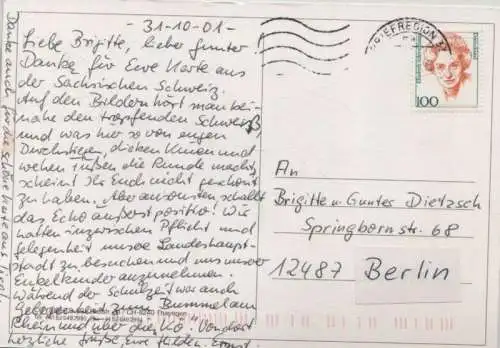 -31-10-01-
Liebe Brigitte, lieber Gunter
Danke für Eure Karte aus
der Sächsischen Schweiz.
Auf den Bildern hört man bei-
nahe den tropfenden Schweiß,
und was hier so von engen
Durchstiegen, dicken Knien und
wehen Füßen die Runde macht,
scheint Ihr Euch nicht geschont
zu haben. Aber ansonsten schallt
das Echo äußerst positiv! Wir
hatten inzwischen Pflicht und
Gelegenheit unsere Landeshaupt-
stadt zu besuchen und uns unserer
Enkelkinder anzunehmen.
Während der Schulzeit war auch
Gelegenheit zum Bummel am
Rhein und über die Kö! Von dort
herzliche Grüße, Eure Hilden. Ernst
Danke auch für die schöne Karte aus Tirol.
BRIEFREGION
100
An
Brigitte u. Gunter Dietzsch
Springbornstr. 68
12487 Berlin